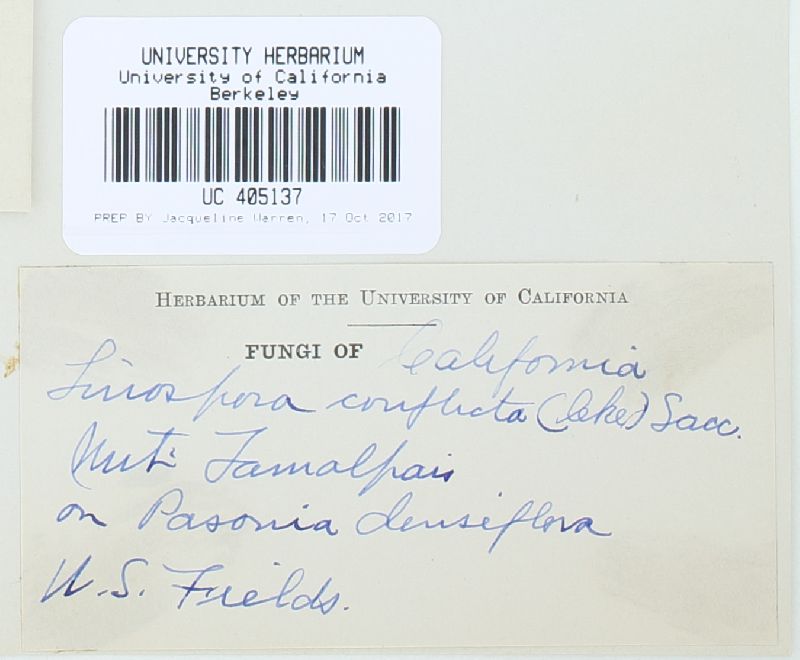 UNIVERSITY HERBARIUM
University of California
Berkeley
UC 405137
PREP BY Jacqueline Warren, 17 Oct 2017
HERBARIUM OF THE UNIVERSITY OF CALIFORNIA
FUNGI OF California
Linospora conflicta (Cke) Sacc.
Mnt. Tamalpais
on Pasonia densiflora
W. S. Fields.